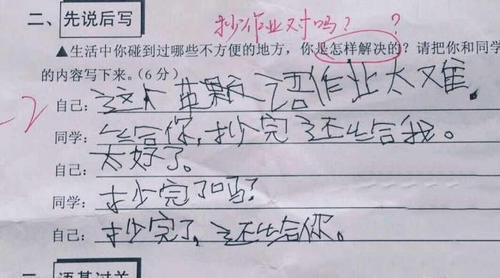 抄作业对吗？ ？
二、先说后写
▲生活中你碰到过哪些不方便的地方，你是怎样解决的？请把你和同学
的内容写下来。（6 分）
-2
自己：这个英 语作业太难。
同学：给你，抄完还给我。
自己：太好了。
同学：抄完了吗？
自己：抄完了，还给你。
二 语基过关